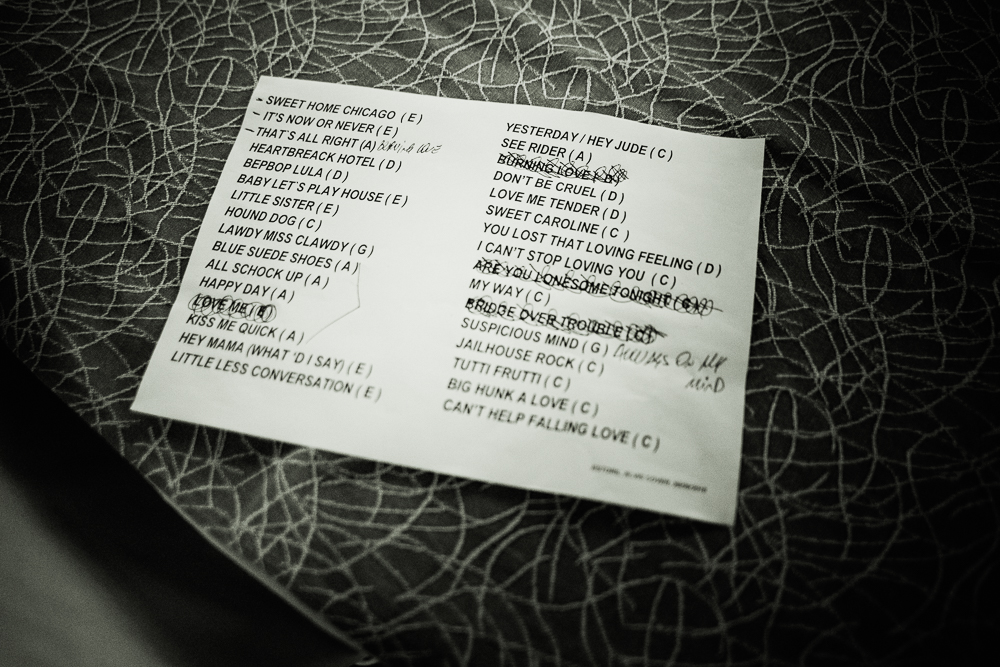 - SWEET HOME CHICAGO (E)
- IT'S NOW OR NEVER (E)
- THAT'S ALL RIGHT (A) BURNING LOVE
HEARTBREACK HOTEL (D)
BEPBOP LULA (D)
BABY LET'S PLAY HOUSE (E)
LITTLE SISTER (E)
HOUND DOG (C)
LAWDY MISS CLAWDY (G)
BLUE SUEDE SHOES (A)
ALL SCHOCK UP (A)
HAPPY DAY (A)
LOVE ME (B)
KISS ME QUICK (A)
HEY MAMA (WHAT 'D I SAY) (E)
LITTLE LESS CONVERSATION (E)
YESTERDAY / HEY JUDE (C)
SEE RIDER (A)
BURNING LOVE (D)
DON'T BE CRUEL (D)
LOVE ME TENDER (D)
SWEET CAROLINE (C)
YOU LOST THAT LOVING FEELING (D)
I CAN'T STOP LOVING YOU (C)
ARE YOU LONESOME TONIGHT (G)
MY WAY (C)
BRIDGE OVER TROUBLE (C)
SUSPICIOUS MIND (G) ALWAYS ON MY MIND
JAILHOUSE ROCK (C)
TUTTI FRUTTI (C)
BIG HUNK A LOVE (C)
CAN'T HELP FALLING LOVE (C)